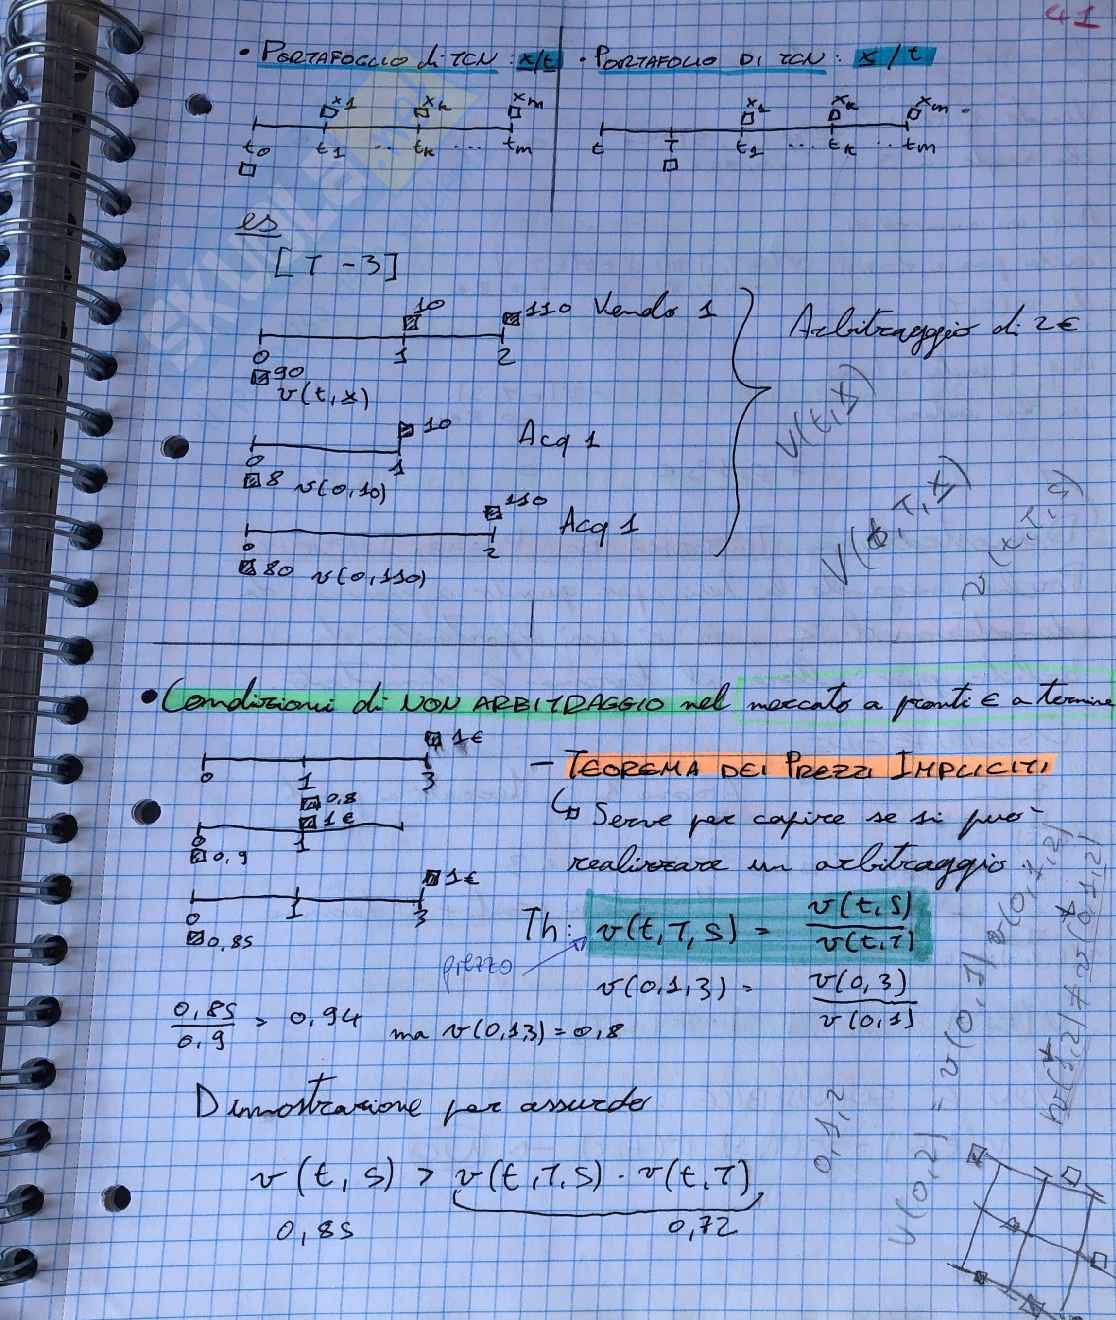 41
• PORTAFOGLIO di TCN : x/t
• PORTAFOLIO DI TCN : x/t
x1 xk xm
t0 t1 ... tk ... tm
x1 xk xm
t T t1 ... tk ... tm
SKUOLA.net
es
[T-3]
10 110 Vendo 1
0 1 2
90
v(t,x)
Arbitraggio di 2€
10 Acq 1
0 1
8 v(0,10)
110 Acq 1
0 2
80 v(0,110)
v(t,x)
V(t,T,x)
v(x,T,s)
• Condizioni di NON ARBITRAGGIO nel mercato a pronti e a termine
1€
0 1 3
0,8
- TEOREMA DEI PREZZI IMPLICITI
↳ Serve per capire se si può
realizzare un arbitraggio
1€
0 1
0,9
1€
0 1 3
0,85
Th: v(t,T,s) = v(t,s) / v(t,T)
prezzo
v(0,1,3) = v(0,3) / v(0,1)
0,85 / 0,9 > 0,94 ma v(0,1,3) = 0,8
Dimostrazione per assurdo
v(t,s) > v(t,T,s) · v(t,T)
0,85 0,72
0,1,2
V(0,2) = v(0,1) v(0,1,2)